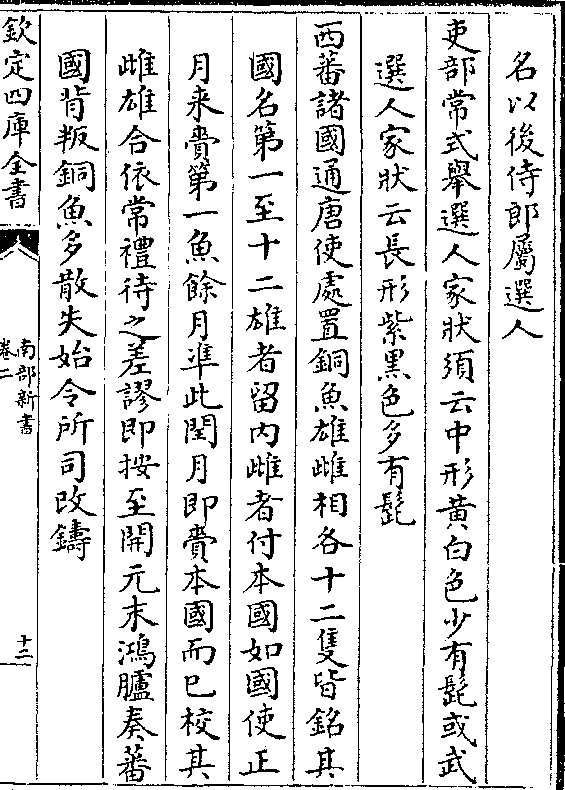 名以後侍郎屬選人
吏部常式舉選人家狀須云中形黄白色少有髭或武
選人家狀云長形紫黒色多有髭
西蕃諸國通唐使處置銅魚雄雌相各十二隻皆銘其
國名第一至十二雄者留内雌者付本國如國使正
月来賫第一魚餘月准此閏月即賫本國而已校其
雌雄合依常禮待之差謬即按至開元末鴻臚奏蕃
國背叛銅魚多散失始令所司改鑄
欽定四庫全書
南部新書
卷二
十二